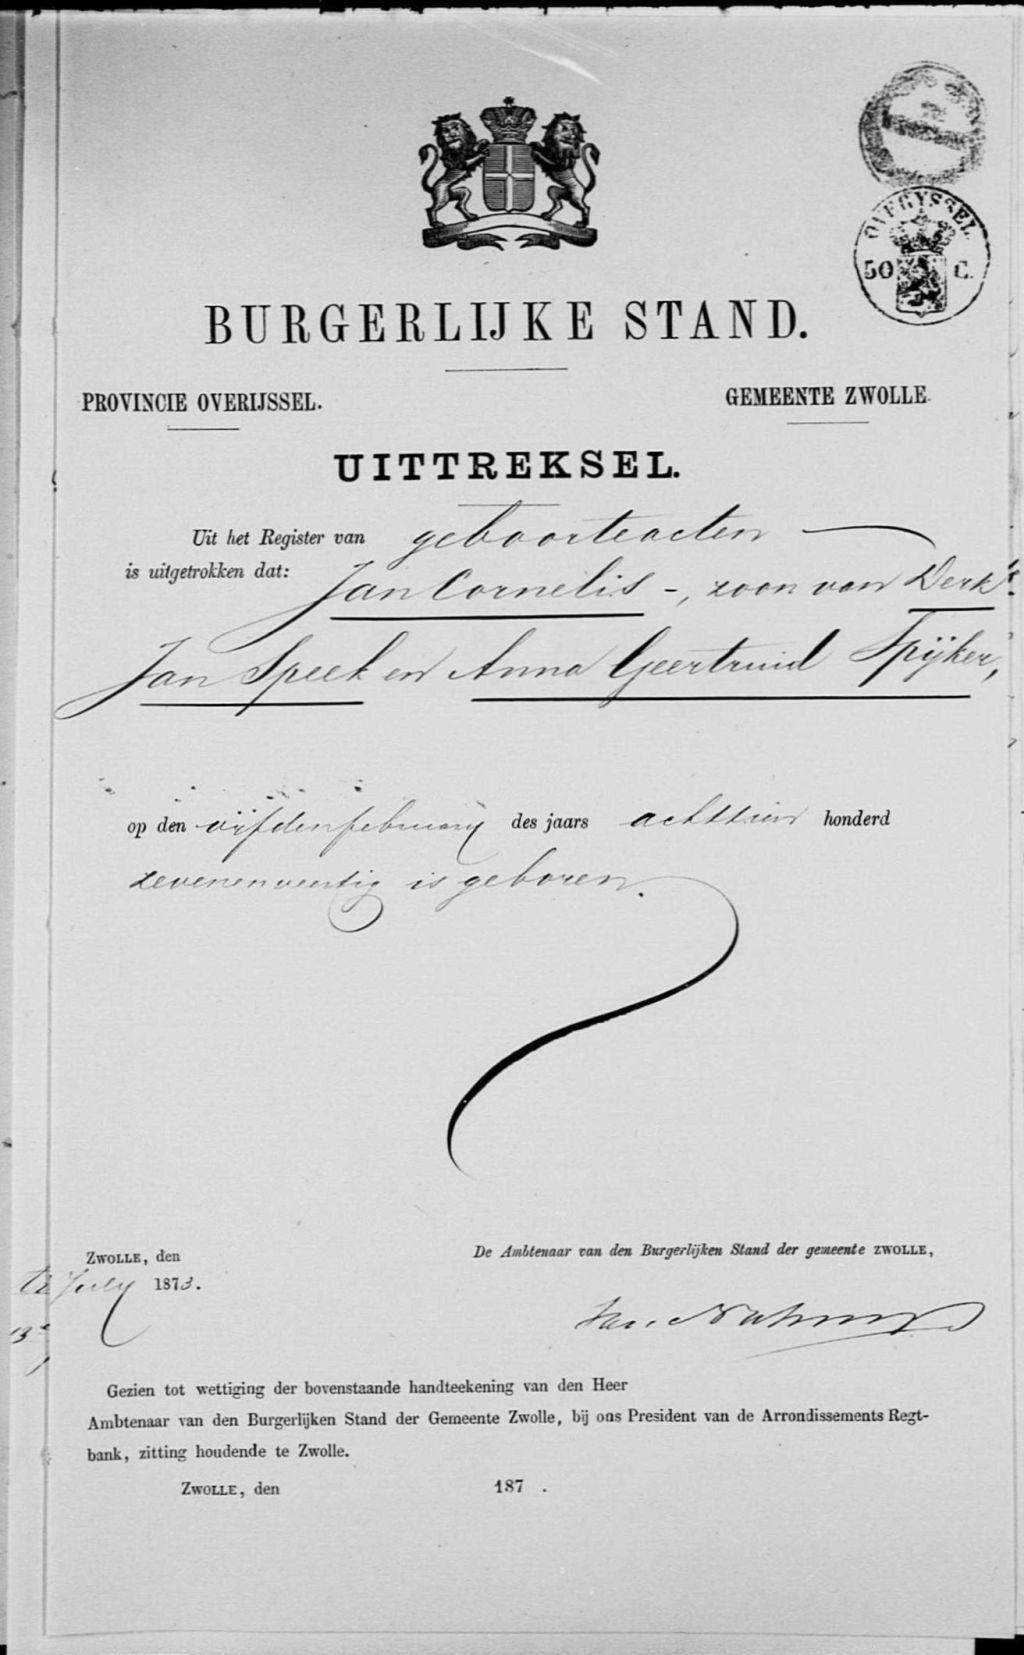 OVERYSSEL
50 C.
BURGERLIJKE STAND.
PROVINCIE OVERIJSSEL.
GEMEENTE ZWOLLE.
UITTREKSEL.
Uit het Register van geboorteacten
is uitgetrokken dat: Jan Cornelis -, zoon van Derk
Jan Speek en Anna Geertruid Spijker,
op den vijfden february des jaars achttien honderd
zevenenveertig is geboren.
ZWOLLE, den
July 1873.
De Ambtenaar van den Burgerlijken Stand der gemeente ZWOLLE,
Gezien tot wettiging der bovenstaande handteekening van den Heer
Ambtenaar van den Burgerlijken Stand der Gemeente Zwolle, bij ons President van de Arrondissements Regt-
bank, zitting houdende te Zwolle.
ZWOLLE, den 187 .